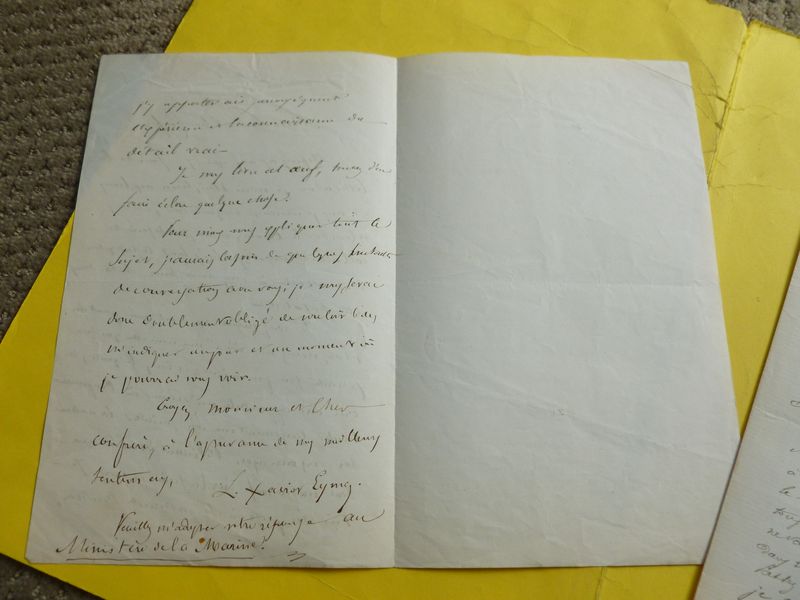 j'y apporterais
expérience et la connaissance du
détail vrai.
Je vous livre cet œuf,
faire éclore quelque chose?
Pour mieux vous expliquer tout le
Sujet, j'aurais besoin de quelques
de conversation avec vous; je vous serai
donc doublement obligé de vouloir bien
m'indiquer un jour et un moment où
je pourrai vous voir.
Croyez, monsieur et cher
confrère, à l'assurance de mes meilleurs
sentimens,
L. Xavier Eyma.
Veuillez m'adresser votre réponse au
Ministère de la Marine.